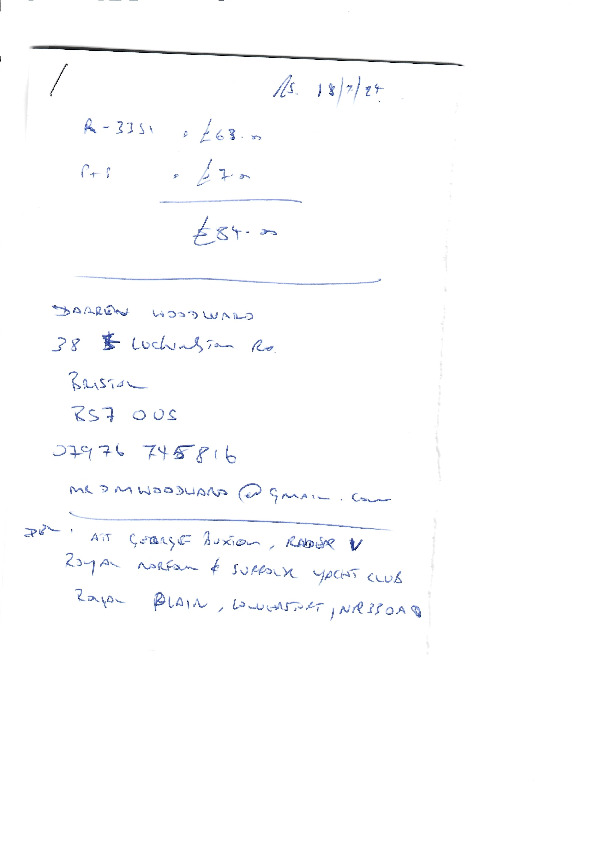 18/7/24
R-3351 . £68.00
P+P . £7.00
£84.00
DARREN WOODWARD
38 Rd.
BRISTOL
BS7 0US
07976 745816
MRDMWOODWARD@GMAIL.COM
DEL. ATT GEORGE RADER V
ROYAL NORFOLK & SUFFOLK YACHT CLUB
ROYAL PLAIN, LOWESTOFT, NR33 0AQ